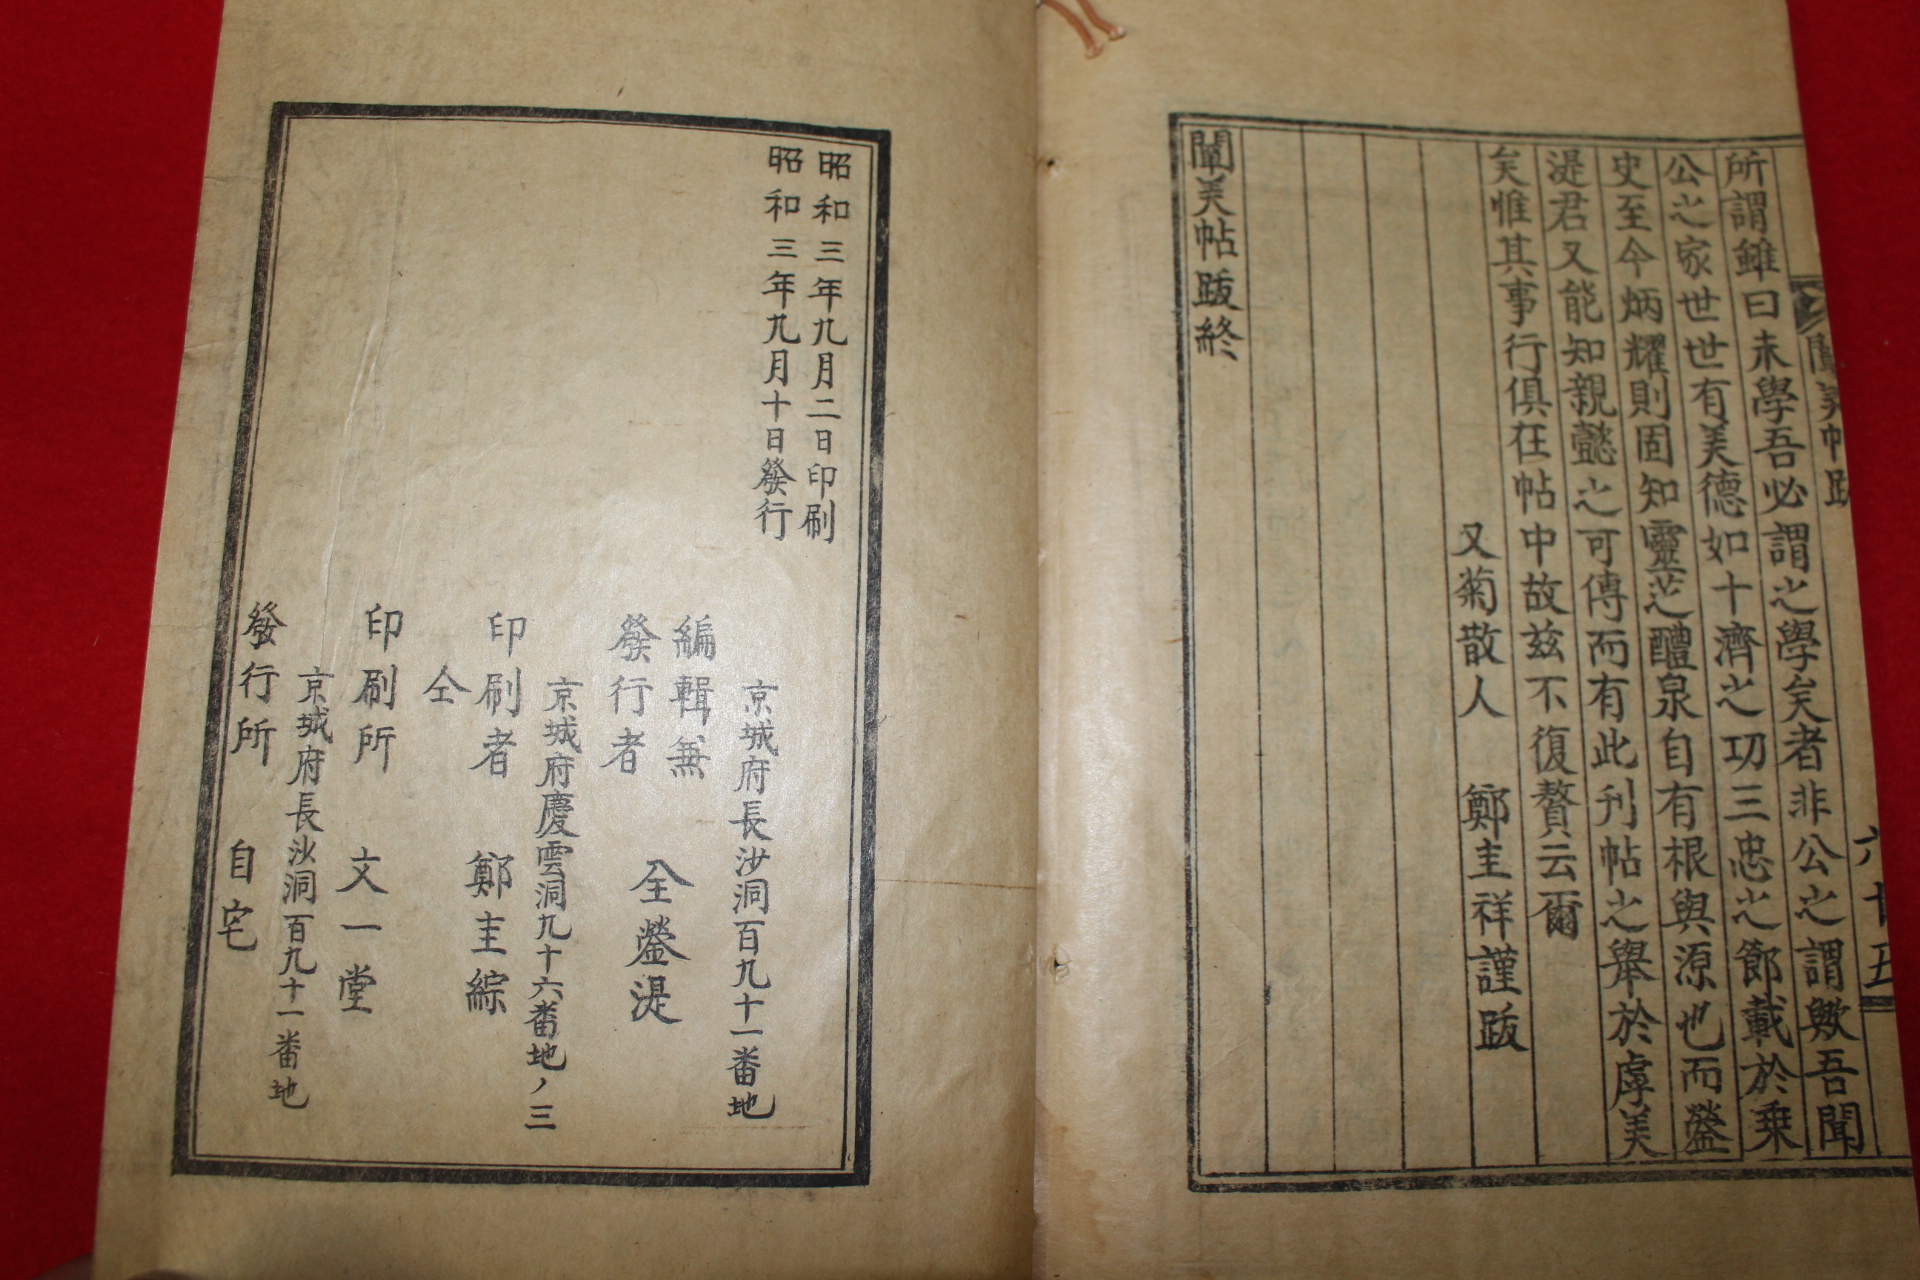 所謂雖曰未學吾必謂之學矣者非公之謂歟吾聞
公之家世世有美德如十濟之功三忠之節載於乗
史至今炳耀則固知靈芝醴泉自有根與源也而瑩
湜君又能知親懿之可傳而有此刊帖之舉於虖美
矣惟其事行俱在帖中故兹不復贅云爾
又菊散人 鄭圭祥謹跋
闡美帖跋終
闡美帖跋
六十五
昭和三年九月二日印刷
昭和三年九月十日發行
京城府長沙洞百九十一番地
編輯兼
發行者 全瑩湜
京城府慶雲洞九十六番地ノ三
印刷者 鄭圭綜
仝
印刷所 文一堂
京城府長沙洞百九十一番地
發行所 自宅